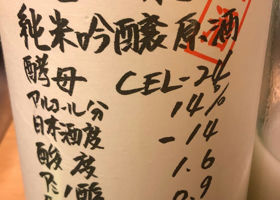 純米吟醸原酒
酵母 CEL-24
アルコール分 14%
日本酒度 -14
酸度 1.6
アミノ酸 0.9